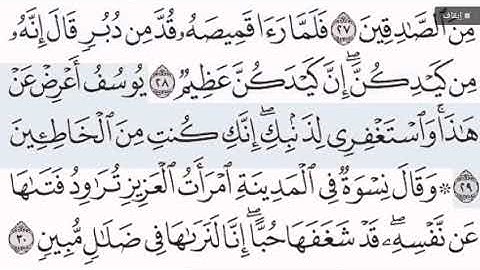 إيقاف
مِنَ ٱلصَّـٰدِقِينَ ٢٧ فَلَمَّا رَءَا قَمِيصَهُۥ قُدَّ مِن دُبُرٍ قَالَ إِنَّهُۥ
مِن كَيْدِكُنَّ ۖ إِنَّ كَيْدَكُنَّ عَظِيمٌ ٢٨ يُوسُفُ أَعْرِضْ عَنْ
هَـٰذَا ۚ وَٱسْتَغْفِرِى لِذَنۢبِكِ ۖ إِنَّكِ كُنتِ مِنَ ٱلْخَاطِـِٔينَ
٢٩ ۞ وَقَالَ نِسْوَةٌ فِى ٱلْمَدِينَةِ ٱمْرَأَتُ ٱلْعَزِيزِ تُرَٰوِدُ فَتَىٰهَا
عَن نَّفْسِهِۦ ۖ قَدْ شَغَفَهَا حُبًّا ۖ إِنَّا لَنَرَىٰهَا فِى ضَلَـٰلٍ مُّبِينٍ ٣٠